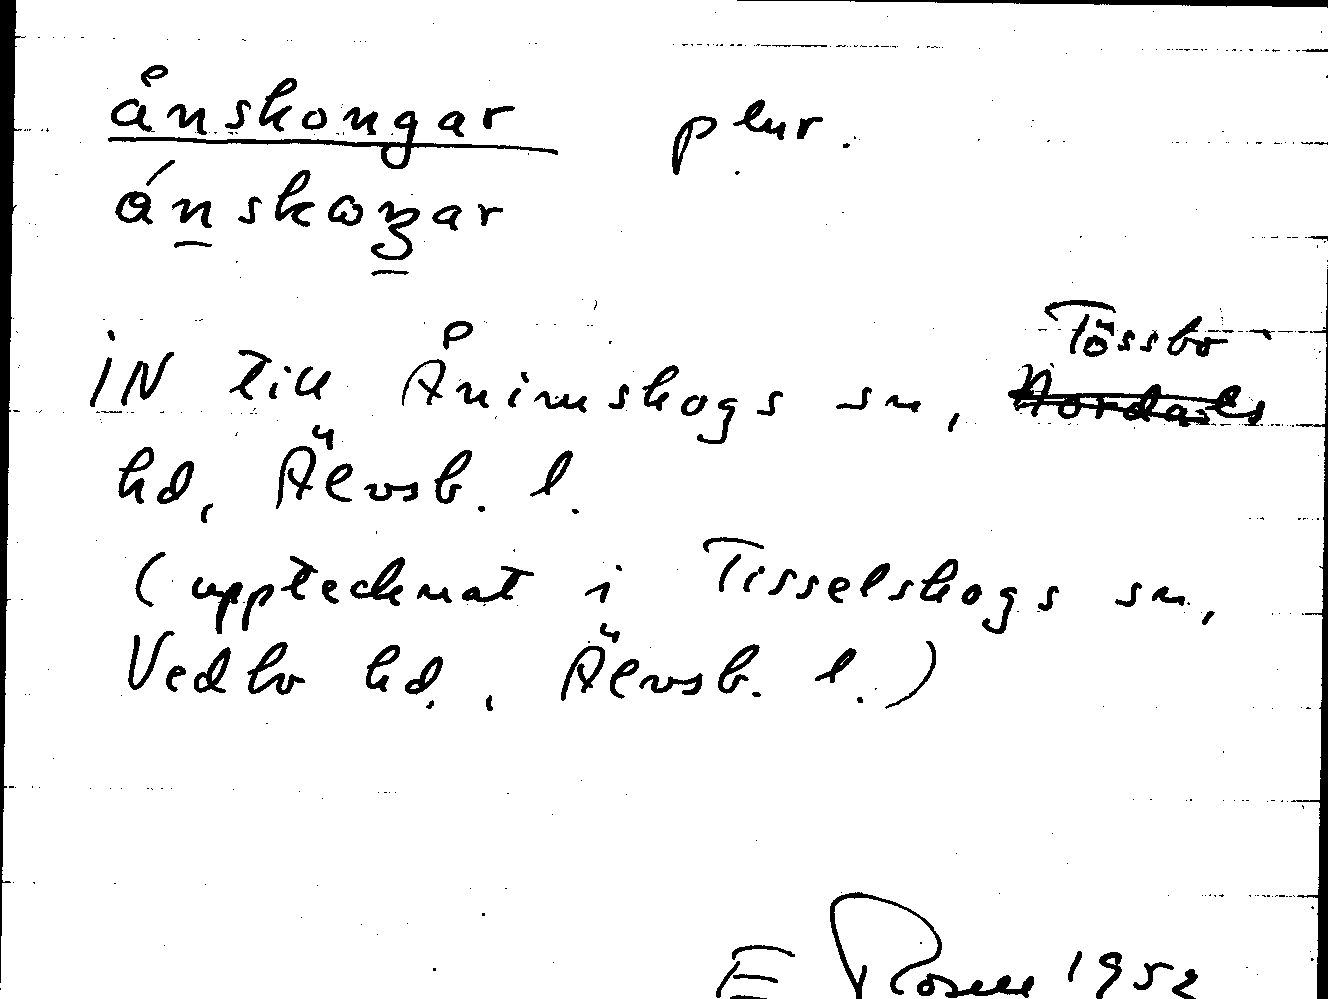 ånskongar plur.
ánskꞷꬼar
IN till Ånimskogs sn, Tössbo ~~Nordals~~
hd, Älvsb. l.
(upptecknat i Tisselskogs sn,
Vedbo hd., Älvsb. l.)
E Rosell 1952